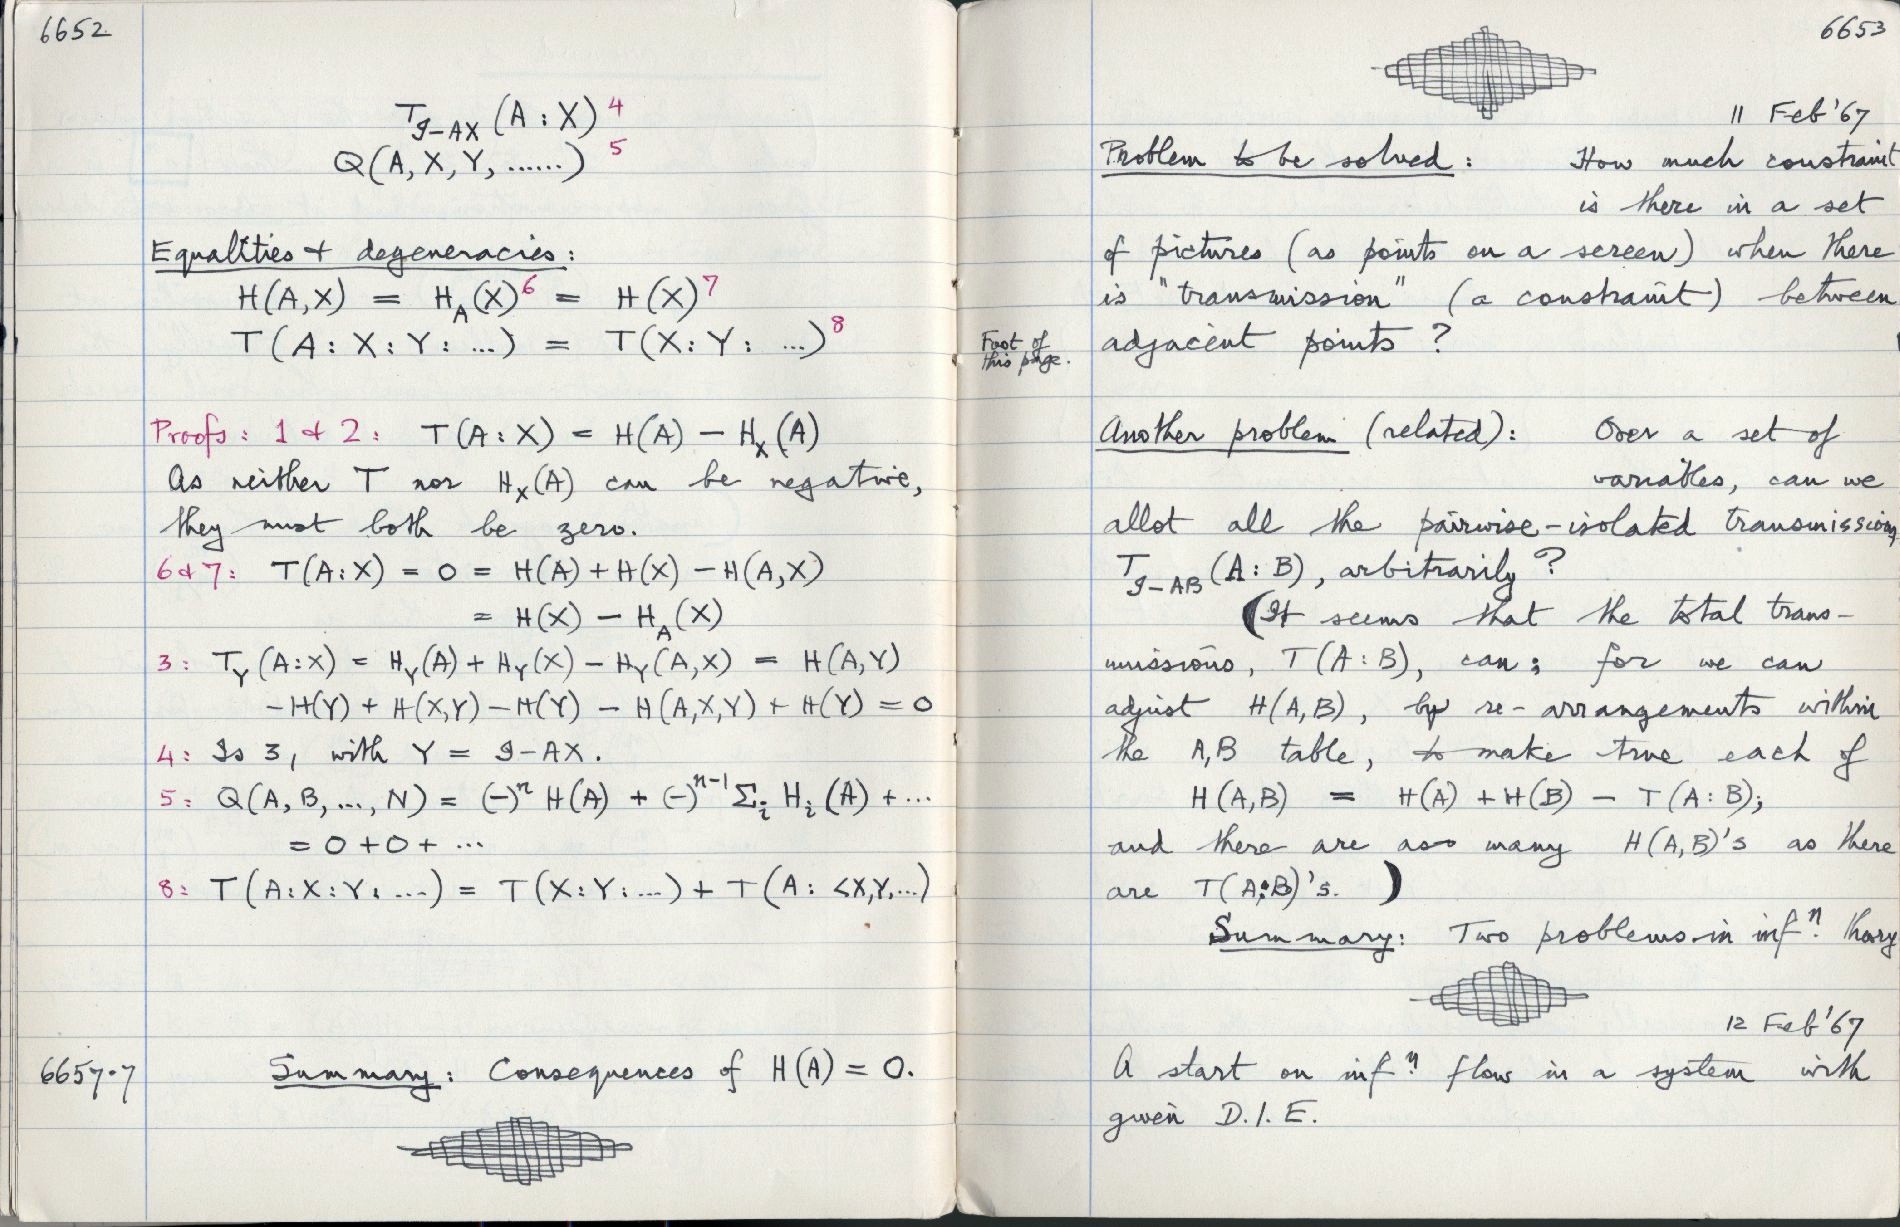 6652
T𝓘-AX (A : X) 4
Q(A, X, Y, ......) 5
Equalities & degeneracies:
H(A,X) = HA(X) 6 = H(X) 7
T(A : X : Y : ...) = T(X : Y : ...) 8
Proofs: 1 & 2: T(A : X) = H(A) − HX(A)
As neither T nor HX(A) can be negative,
they must both be zero.
6 & 7: T(A:X) = 0 = H(A) + H(X) − H(A,X)
= H(X) − HA(X)
3: TY(A:X) = HY(A) + HY(X) − HY(A,X) = H(A,Y)
−H(Y) + H(X,Y) − H(Y) − H(A,X,Y) + H(Y) = 0
4: Is 3, with Y = 𝓘−AX.
5: Q(A, B, ..., N) = (−)ⁿ H(A) + (−)ⁿ⁻¹ Σi Hi(A) + ...
= 0 + 0 + ...
8: T(A:X:Y: ...) = T(X:Y: ...) + T(A: <X,Y,...)
6657.7 Summary: Consequences of H(A) = 0.
6653
11 Feb '67
Problem to be solved: How much constraint
is there in a set
of pictures (as points on a screen) when there
is "transmission" (a constraint) between
Foot of
this page.
adjacent points?
Another problem (related): Over a set of
variables, can we
allot all the pairwise-isolated transmissions,
T𝓘-AB (A : B), arbitrarily?
(It seems that the total trans-
missions, T(A : B), can; for we can
adjust H(A,B), by re-arrangements within
the A,B table, to make true each of
H(A,B) = H(A) + H(B) − T(A : B);
and there are as many H(A,B)'s as there
are T(A:B)'s. )
Summary: Two problems in infⁿ. theory
12 Feb '67
A start on infⁿ. flow in a system with
given D.I.E.